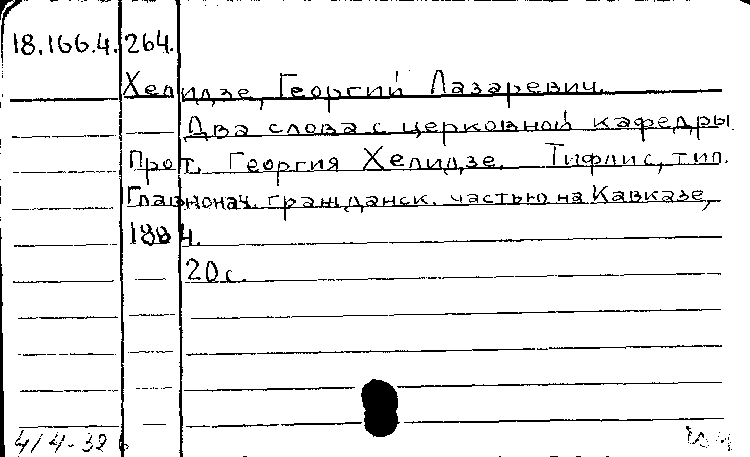 18.166.4.264.
Хелидзе, Георгий Лазаревич.
Два слова с церковной кафедры
Прот. Георгия Хелидзе. Тифлис, тип.
Главнонач. гражданск. частью на Кавказе,
1884.
20 с.